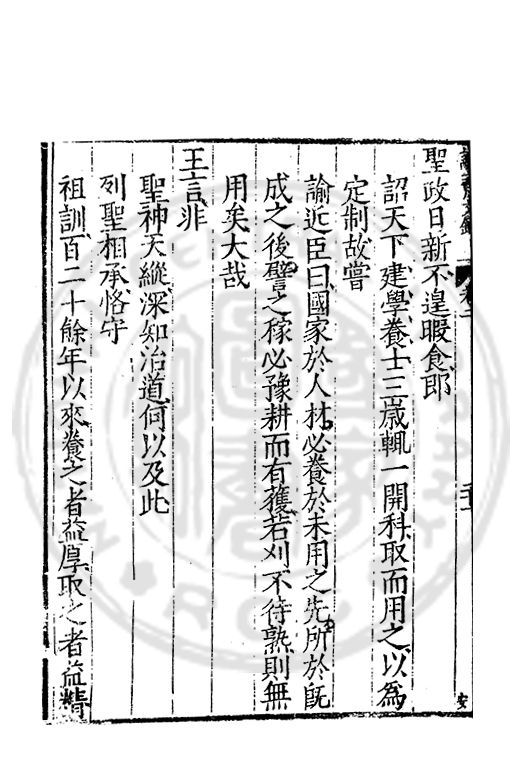 聖政日新不遑暇食即
詔天下建學養士三歲輒一開科取而用之以為
定制故嘗
諭近臣曰國家於人材必養於未用之先所於旣
成之後譬之稼必豫耕而有獲若刈不待熟則無
用矣大哉
王言非
聖神天縱深知治道何以及此
列聖相承恪守
祖訓百二十餘年以來養之者益厚取之者益精